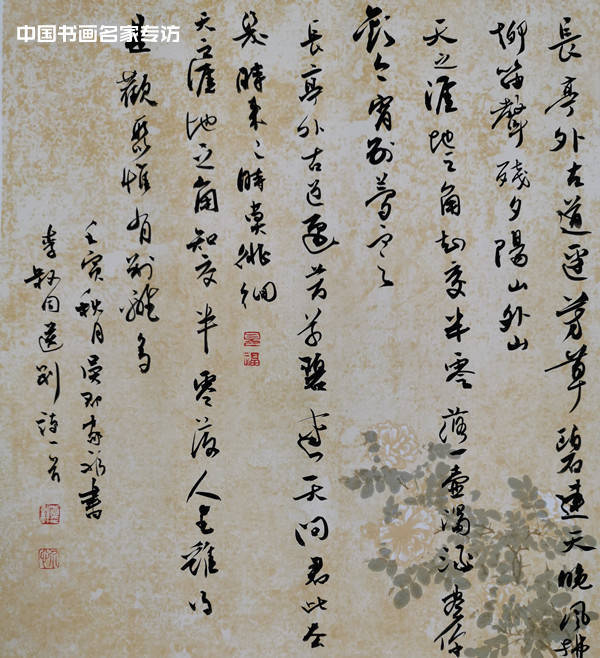 中国书画名家专访
長亭外古道邊芳草碧連天晚風拂
柳笛聲殘夕陽山外山
天之涯地之角知交半零落一壺濁酒盡餘
歡今宵別夢寒
長亭外古道邊芳草碧連天问君此去
幾時来こ時莫徘徊
天之涯地之角知交半零落人生難得
是歡聚惟有别離多
壬寅秋月吳郡 书
李叔同送别詩一首